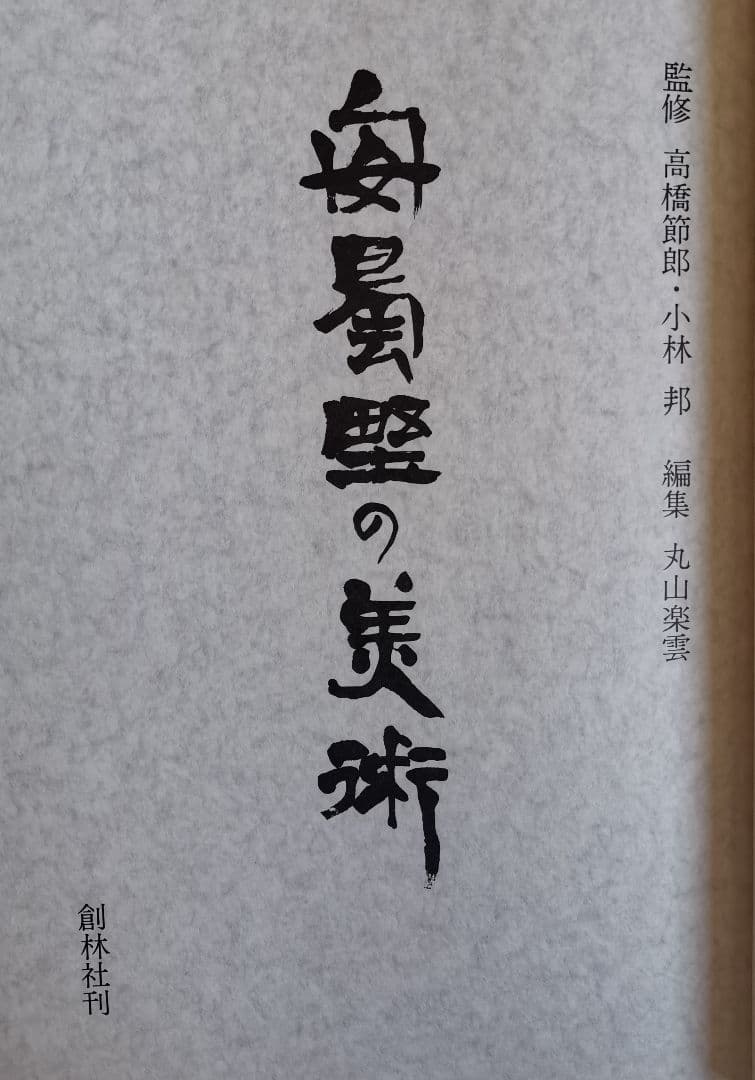 監修 高橋節郎・小林 邦 編集 丸山楽雲
安曇野の美術
創林社刊